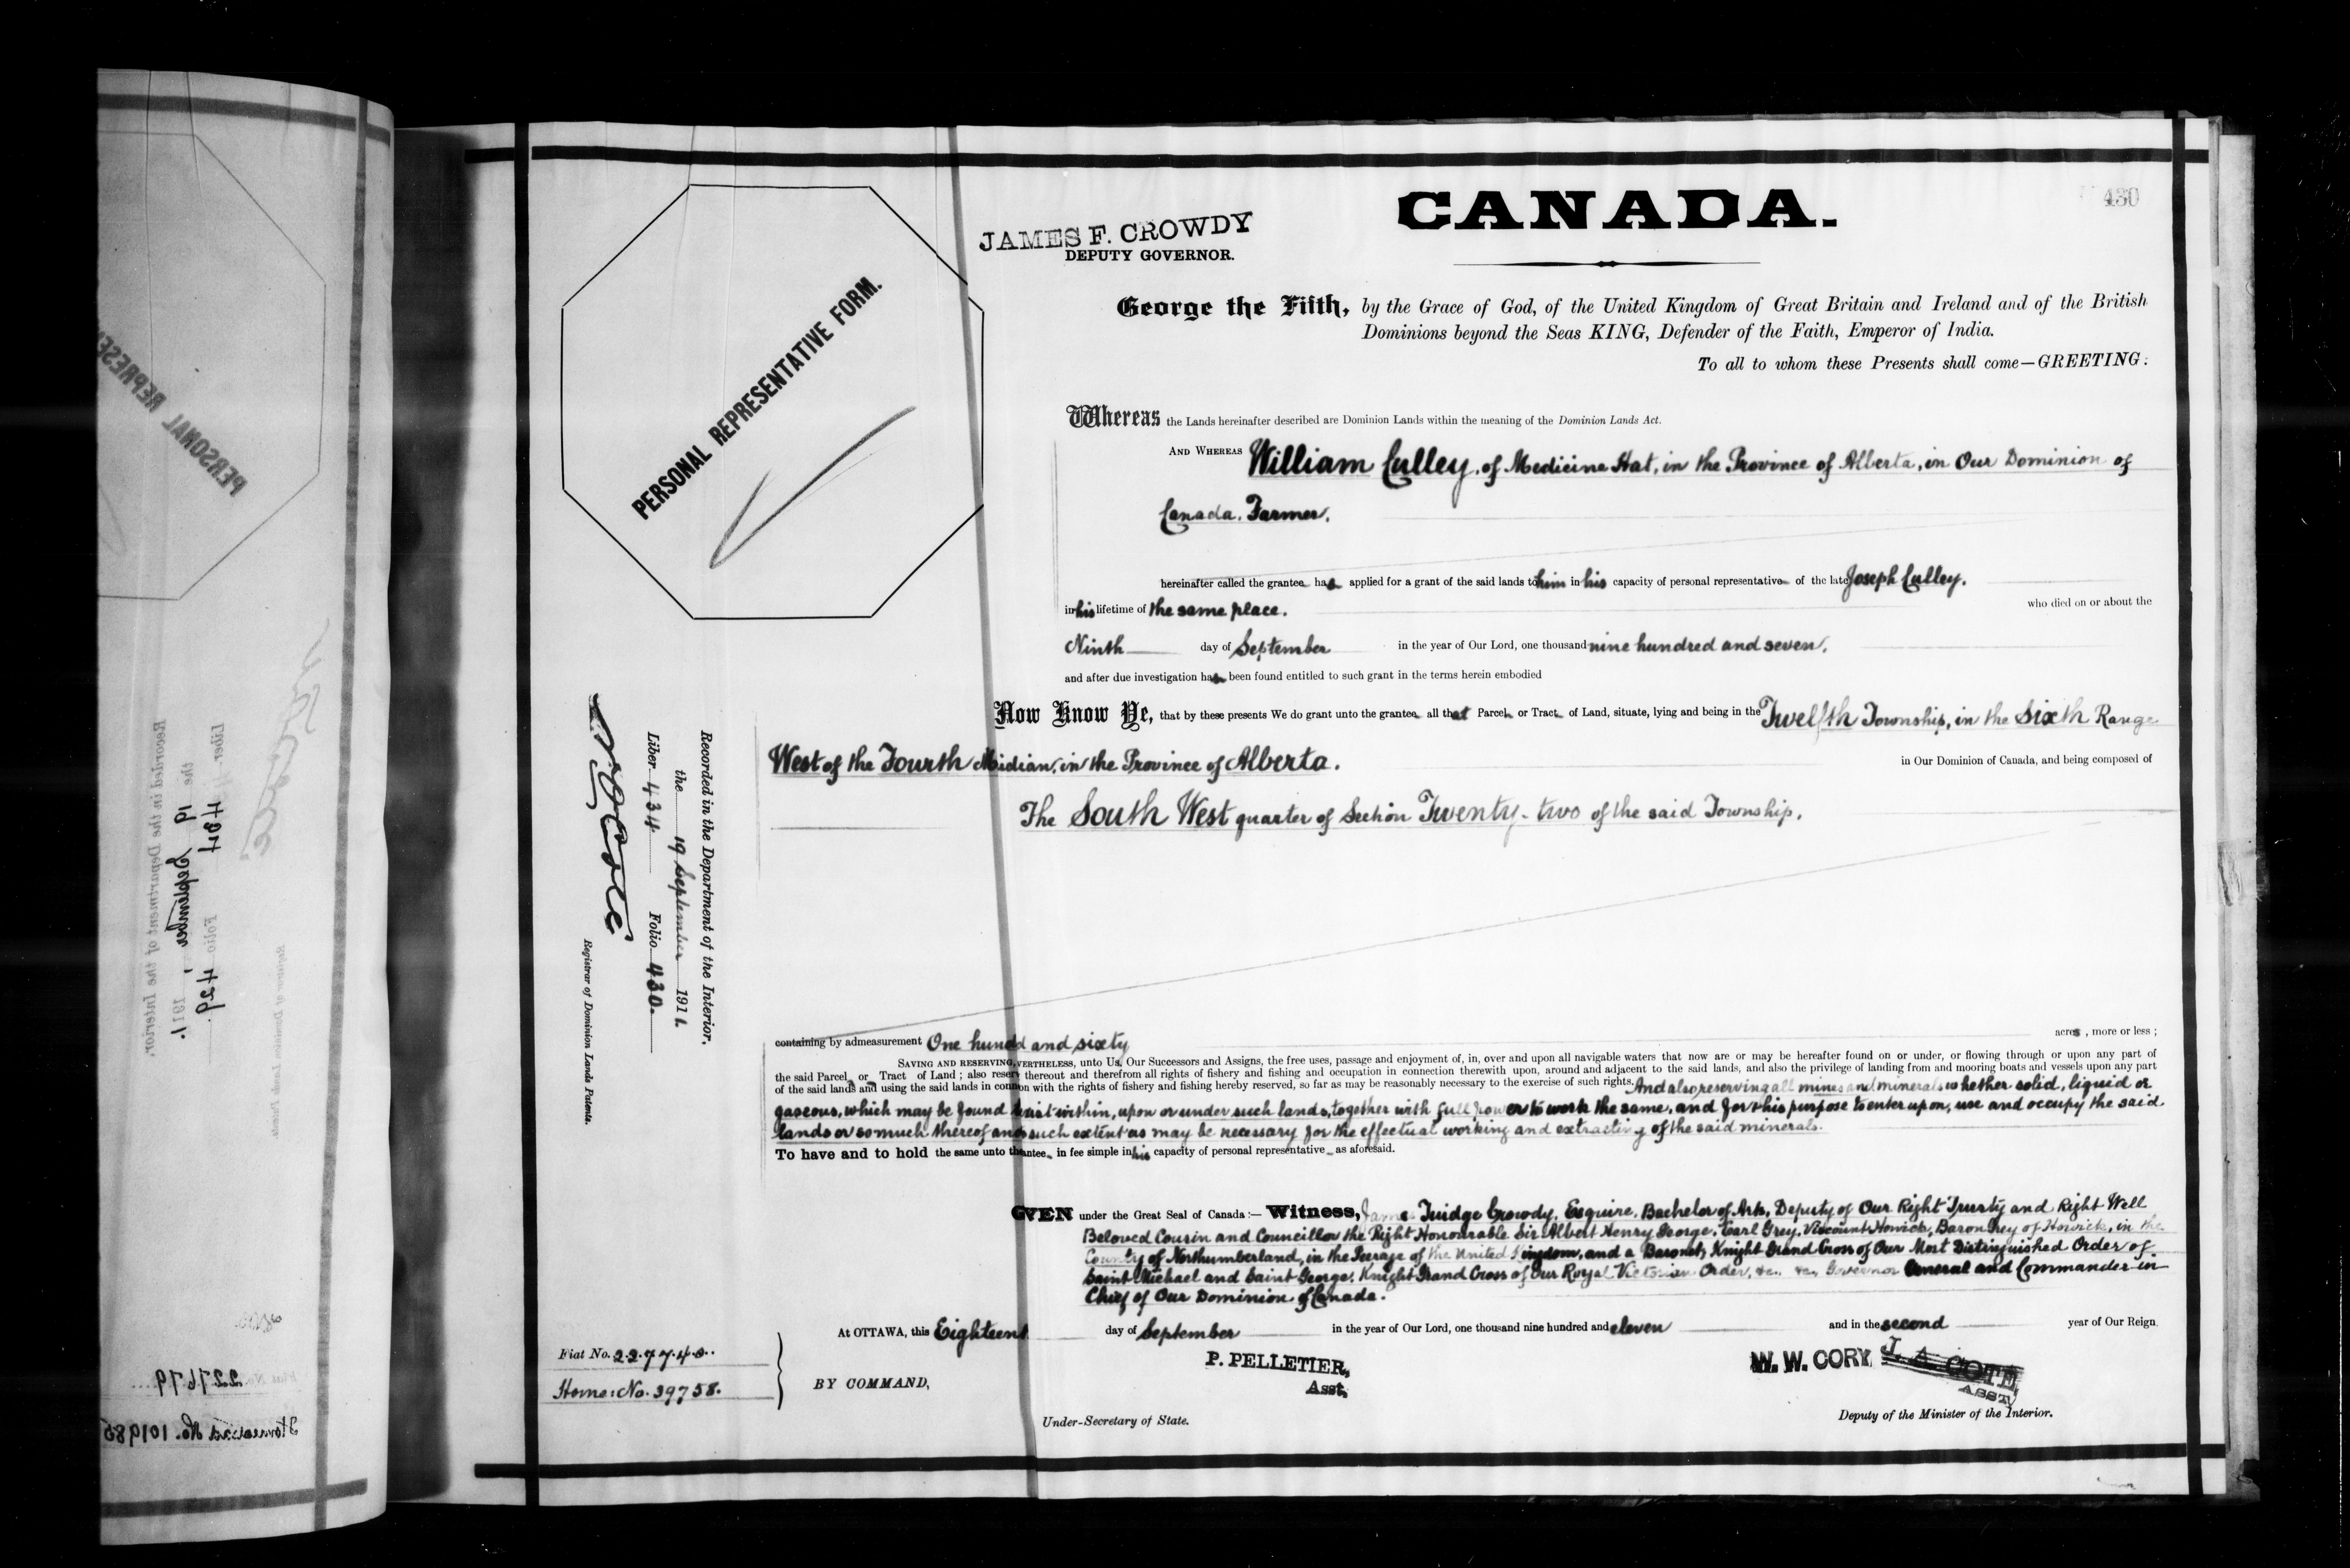 430
CANADA.
JAMES F. CROWDY
DEPUTY GOVERNOR.
PERSONAL REPRESENTATIVE FORM.
George the Fifth, by the Grace of God, of the United Kingdom of Great Britain and Ireland and of the British
Dominions beyond the Seas KING, Defender of the Faith, Emperor of India.
To all to whom these Presents shall come—GREETING:
Whereas the Lands hereinafter described are Dominion Lands within the meaning of the Dominion Lands Act.
AND WHEREAS William Culley, of Medicine Hat, in the Province of Alberta, in Our Dominion of
Canada, Farmer,
hereinafter called the grantee has applied for a grant of the said lands to him in his capacity of personal representative of the late Joseph Culley,
in his lifetime of the same place. who died on or about the
Ninth day of September in the year of Our Lord, one thousand nine hundred and seven,
and after due investigation has been found entitled to such grant in the terms herein embodied
Now Know Ye, that by these presents We do grant unto the grantee all that Parcel or Tract of Land, situate, lying and being in the Twelfth Township, in the Sixth Range
West of the Fourth Midian, in the Province of Alberta. in Our Dominion of Canada, and being composed of
The South West quarter of Section Twenty-two of the said Township.
containing by admeasurement One hund d and sixty acres, more or less;
SAVING AND RESERVING, VERTHELESS, unto Us, Our Successors and Assigns, the free uses, passage and enjoyment of, in, over and upon all navigable waters that now are or may be hereafter found on or under, or flowing through or upon any part of
the said Parcel or Tract of Land; also reser thereout and therefrom all rights of fishery and fishing and occupation in connection therewith upon, around and adjacent to the said lands, and also the privilege of landing from and mooring boats and vessels upon any part
of the said lands and using the said lands in con on with the rights of fishery and fishing hereby reserved, so far as may be reasonably necessary to the exercise of such rights. And also reserving all mines and minerals whether solid, liquid or
gaseous, which may be found exist within, upon or under such lands, together with full power to work the same, and for this purpose to enter upon, use and occupy the said
lands or so much thereof and such extent as may be necessary for the effectual working and extracting of the said minerals.
To have and to hold the same unto antee in fee simple in his capacity of personal representative as aforesaid.
G VEN under the Great Seal of Canada:— Witness, James Fuidge Crowdy, Esquire, Bachelor of Arts, Deputy of Our Right Trusty and Right Well
Beloved Cousin and Councillor the Right Honourable Sir Albert Henry George, Earl Grey, Viscount Howick, Baron Grey of Howick, in the
County of Northumberland, in the Peerage of the United Kingdom, and a Baronet, Knight Grand Cross of Our Most Distinguished Order of
Saint Michael and Saint George, Knight Grand Cross of Our Royal Victorian Order, &c., &c., Governor General and Commander-in-
Chief of Our Dominion of Canada.
At OTTAWA, this Eighteent day of September in the year of Our Lord, one thousand nine hundred and eleven and in the second year of Our Reign.
Fiat No. 227740.
Home: No. 39758.
BY COMMAND,
P. PELLETIER,
Asst.
Under-Secretary of State.
W. W. CORY
J. A. COTE
ASST.
Deputy of the Minister of the Interior.
Recorded in the Department of the Interior.
the 19 September 1911.
Liber 434 Folio 430.
Registrar of Dominion Lands Patents.
PERSONAL REPRESE
Recorded in the Department of the Interior,
the 19 September, 1911.
Liber 434 Folio 429.
Registrar of Dominion Lands Patents.
Fiat No. 227679
Homestead No. 101985